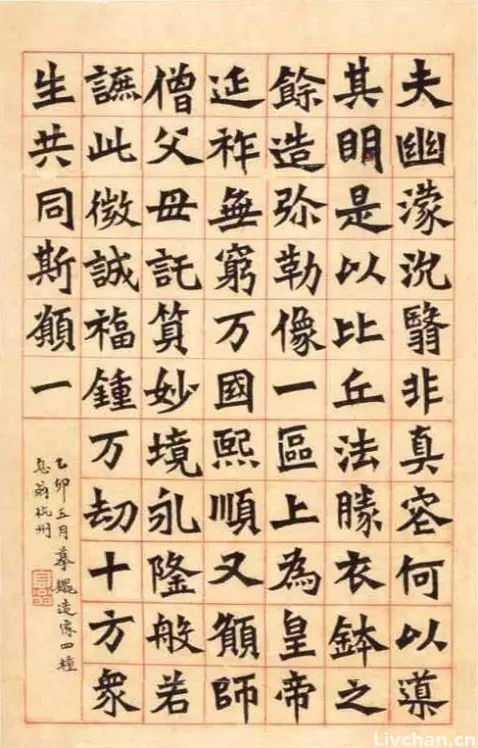 夫幽濛沉翳非真容何以導
其眀是以比丘法勝衣鉢之
餘造弥勒像一區上為皇帝
延祚無窮万國熙順又願師
僧父母託筭妙境永隆般若
謶此微誠福鍾万劫十方衆
生共同斯願一
乙卯五月摹魏造像四種
息翁杭州
Livchan.cn